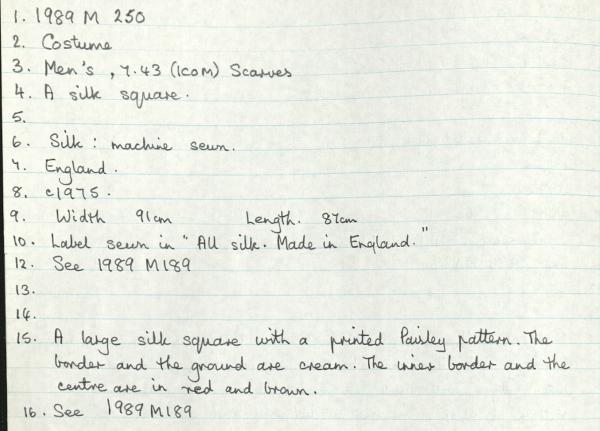 1. 1989 M 250
2. Costume
3. Men's, 7.43 (ICOM) Scarves
4. A silk square.
5.
6. Silk : machine sewn.
7. England.
8. c1975.
9. Width 91cm Length. 87cm
10. Label sewn in "All silk. Made in England."
12. See 1989 M189
13.
14.
15. A large silk square with a printed Paisley pattern. The
border and the ground are cream. The inner border and the
centre are in red and brown.
16. See 1989 M189